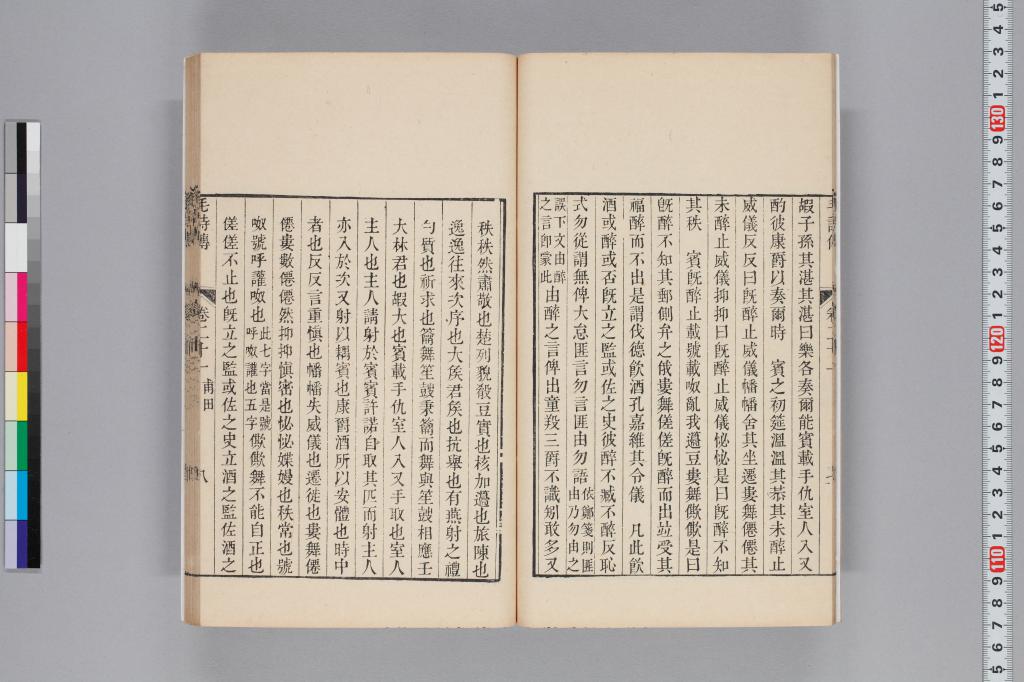 嘏子孫其湛其湛曰樂各奏爾能賓載手仇室人入又
酌彼康爵以奏爾時　賓之初筵溫溫其恭其未醉止
威儀反反曰旣醉止威儀幡幡舍其坐遷婁舞僊僊其
未醉止威儀抑抑曰旣醉止威儀怭怭是曰旣醉不知
其秩　賓旣醉止載號載呶亂我籩豆婁舞僛僛是曰
旣醉不知其郵側弁之俄婁舞傞傞旣醉而出竝受其
福醉而不出是謂伐德飮酒孔嘉維其令儀　凡此飮
酒或醉或否旣立之監或佐之史彼醉不臧不醉反恥
式勿從謂無俾大怠匪言勿言匪由勿語依鄭箋則匪由乃勿由之
誤下文由醉之言卽蒙此由醉之言俾出童羖三爵不識矧敢多又
秩秩然肅敬也楚列貌殽豆實也核加籩也旅陳也
逸逸往來次序也大矦君矦也抗舉也有燕射之禮
勺質也祈求也籥舞笙鼓秉籥而舞與笙鼓相應壬
大林君也嘏大也賓載手仇室人入又手取也室人
主人也主人請射於賓賓許諾自取其匹而射主人
亦入於次又射以耦賓也康爵酒所以安體也時中
者也反反言重愼也幡幡失威儀也遷徙也婁舞僊
僊婁數僊僊然抑抑愼密也怭怭媟嫚也秩常也號
呶號呼讙呶也此七字當是號呼呶讙也五字僛僛舞不能自正也
傞傞不止也旣立之監或佐之史立酒之監佐酒之
毛詩傳　卷二十一　甫田　八